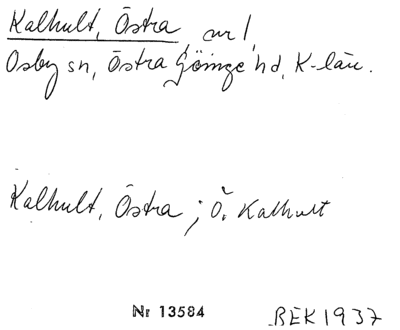 Kalhult, Östra, nr 1,
Osby sn, Östra Göinge hd, K-län.
Kalhult, Östra; Ö. Kalhult
Nr 13584
BEK 1937